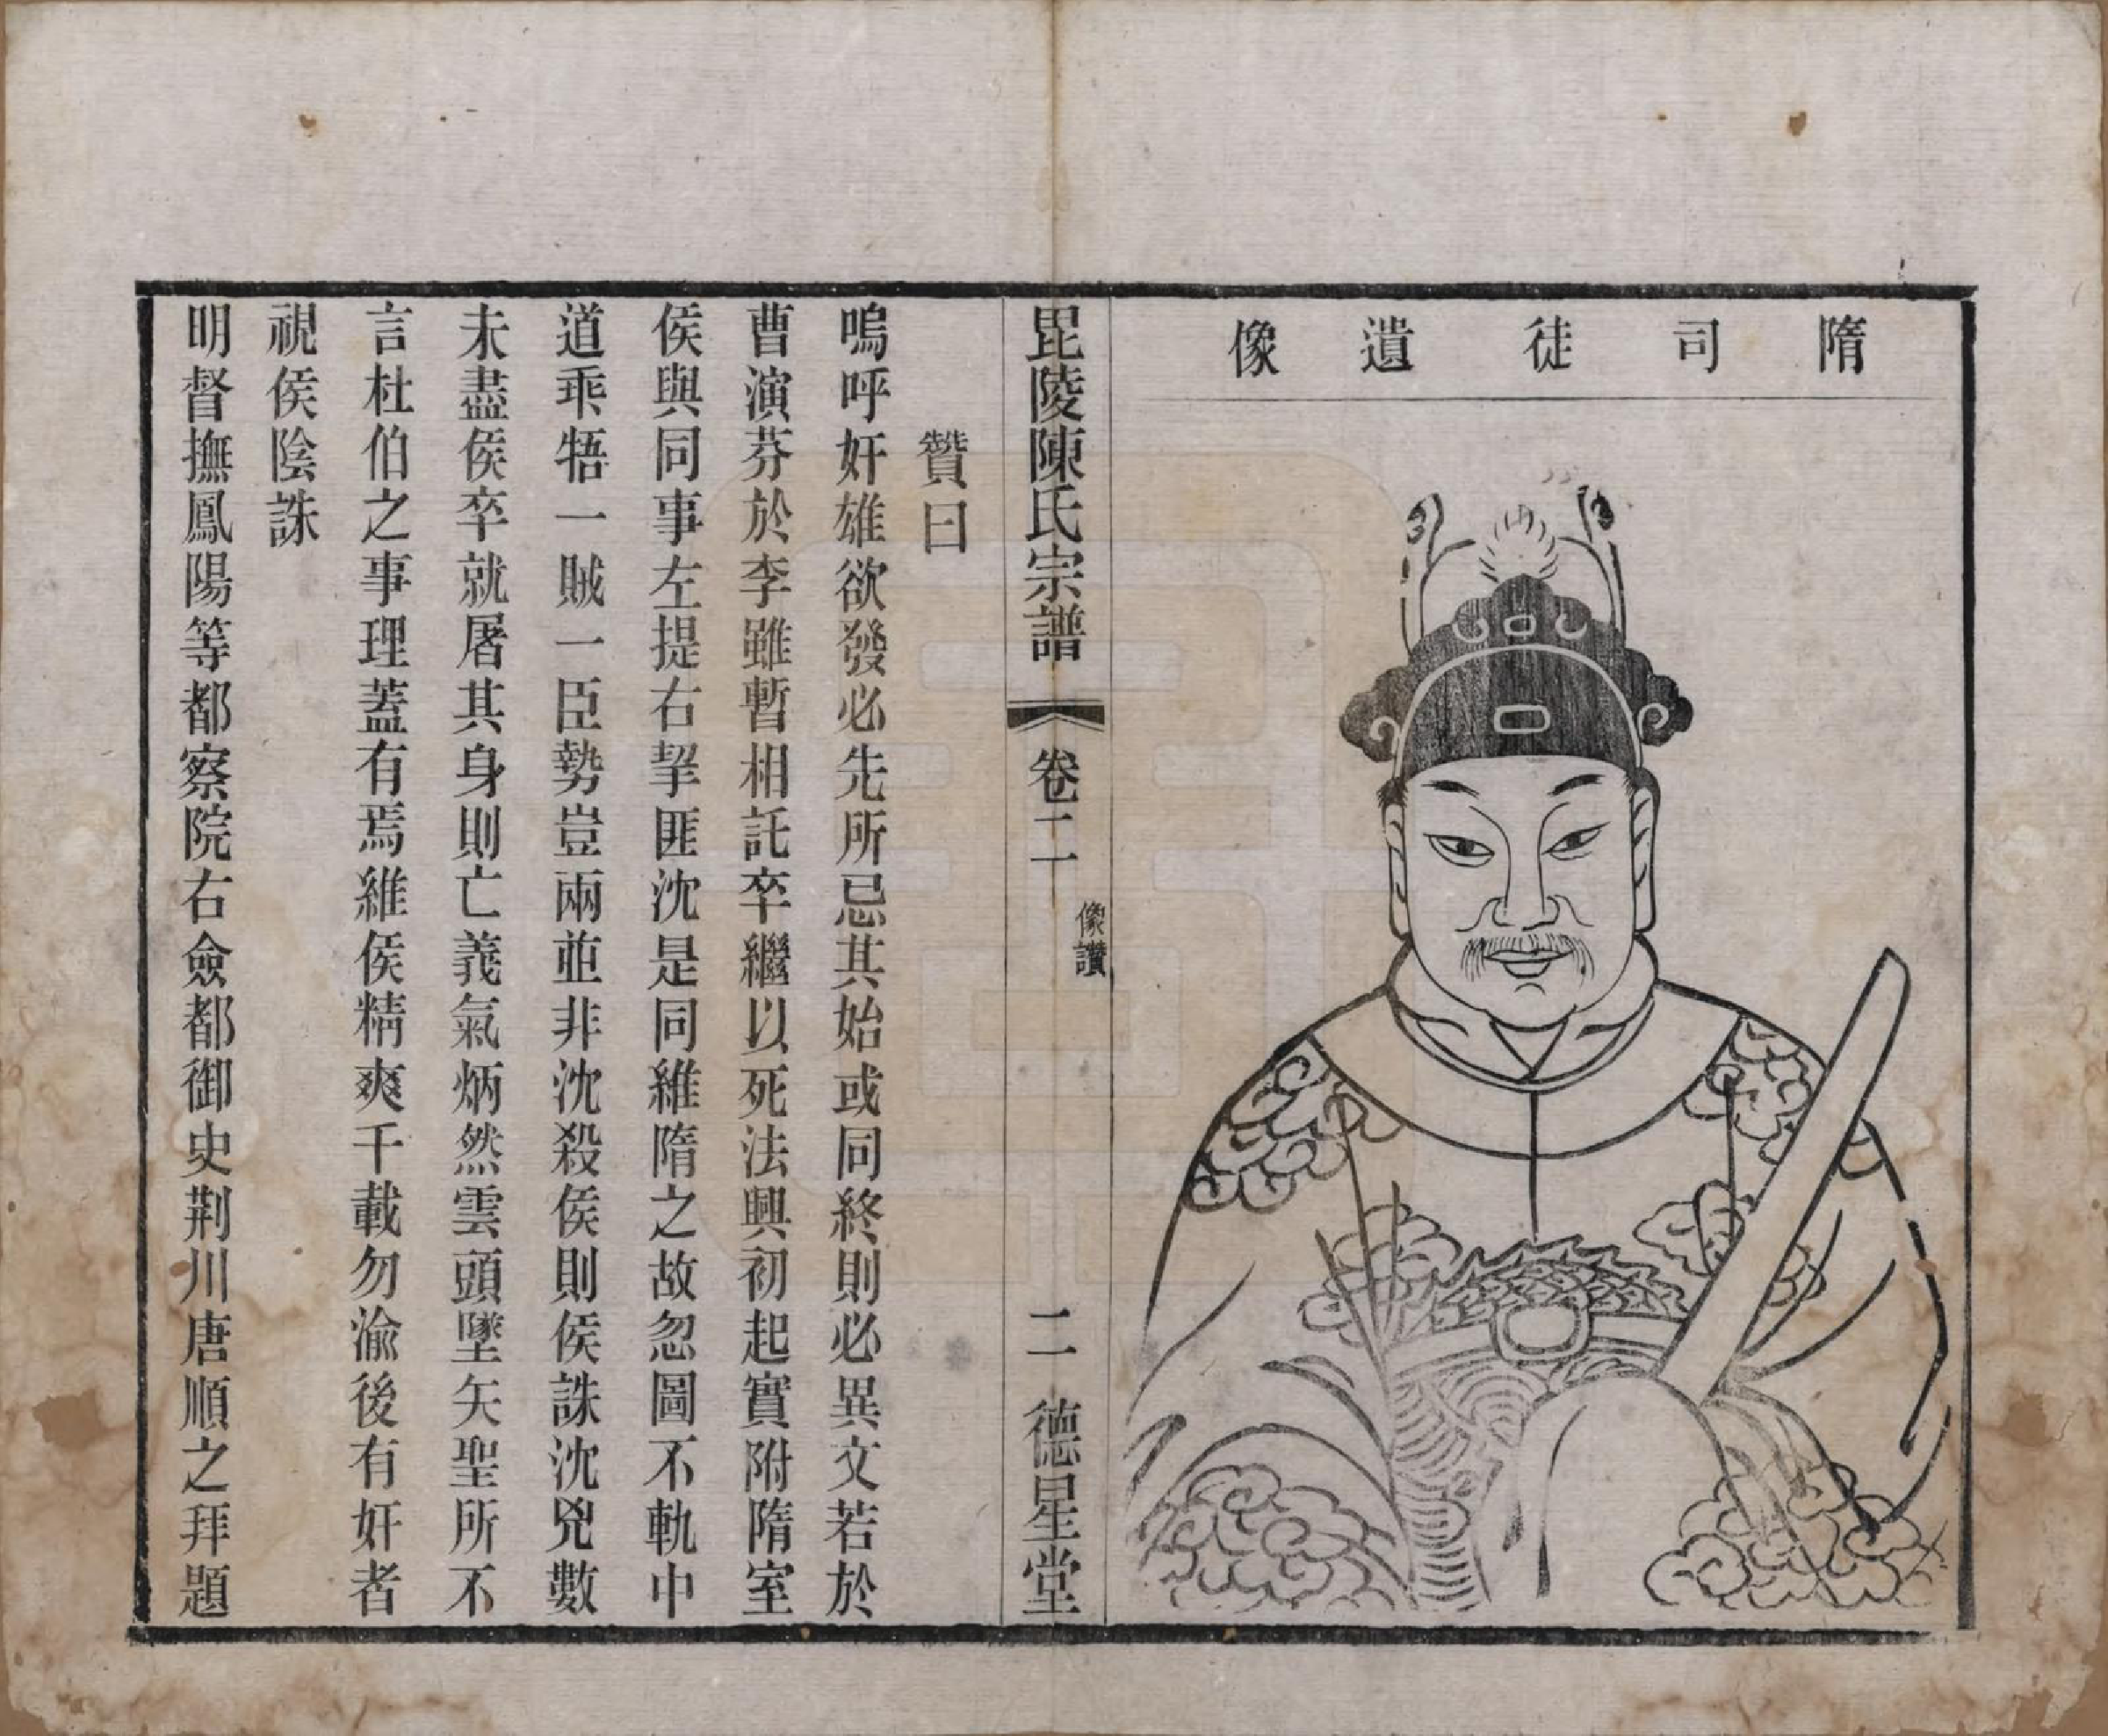 隋司徒遺像
毘陵陳氏宗譜
卷二
像讚
二
德星堂
贊曰
嗚呼奸雄欲發必先所忌其始或同終則必異文若於
曹演芬於李雖暫相託卒繼以死法興初起實附隋室
侯與同事左提右挈匪沈是同維隋之故忽圖不軌中
道乖牾一賊一臣勢豈兩並非沈殺侯則侯誅沈兇數
未盡侯卒就屠其身則亡義氣炳然雲頭墜矢聖所不
言杜伯之事理蓋有焉維侯精爽千載勿渝後有奸者
視侯陰誅
明督撫鳳陽等都察院右僉都御史荆川唐順之拜題